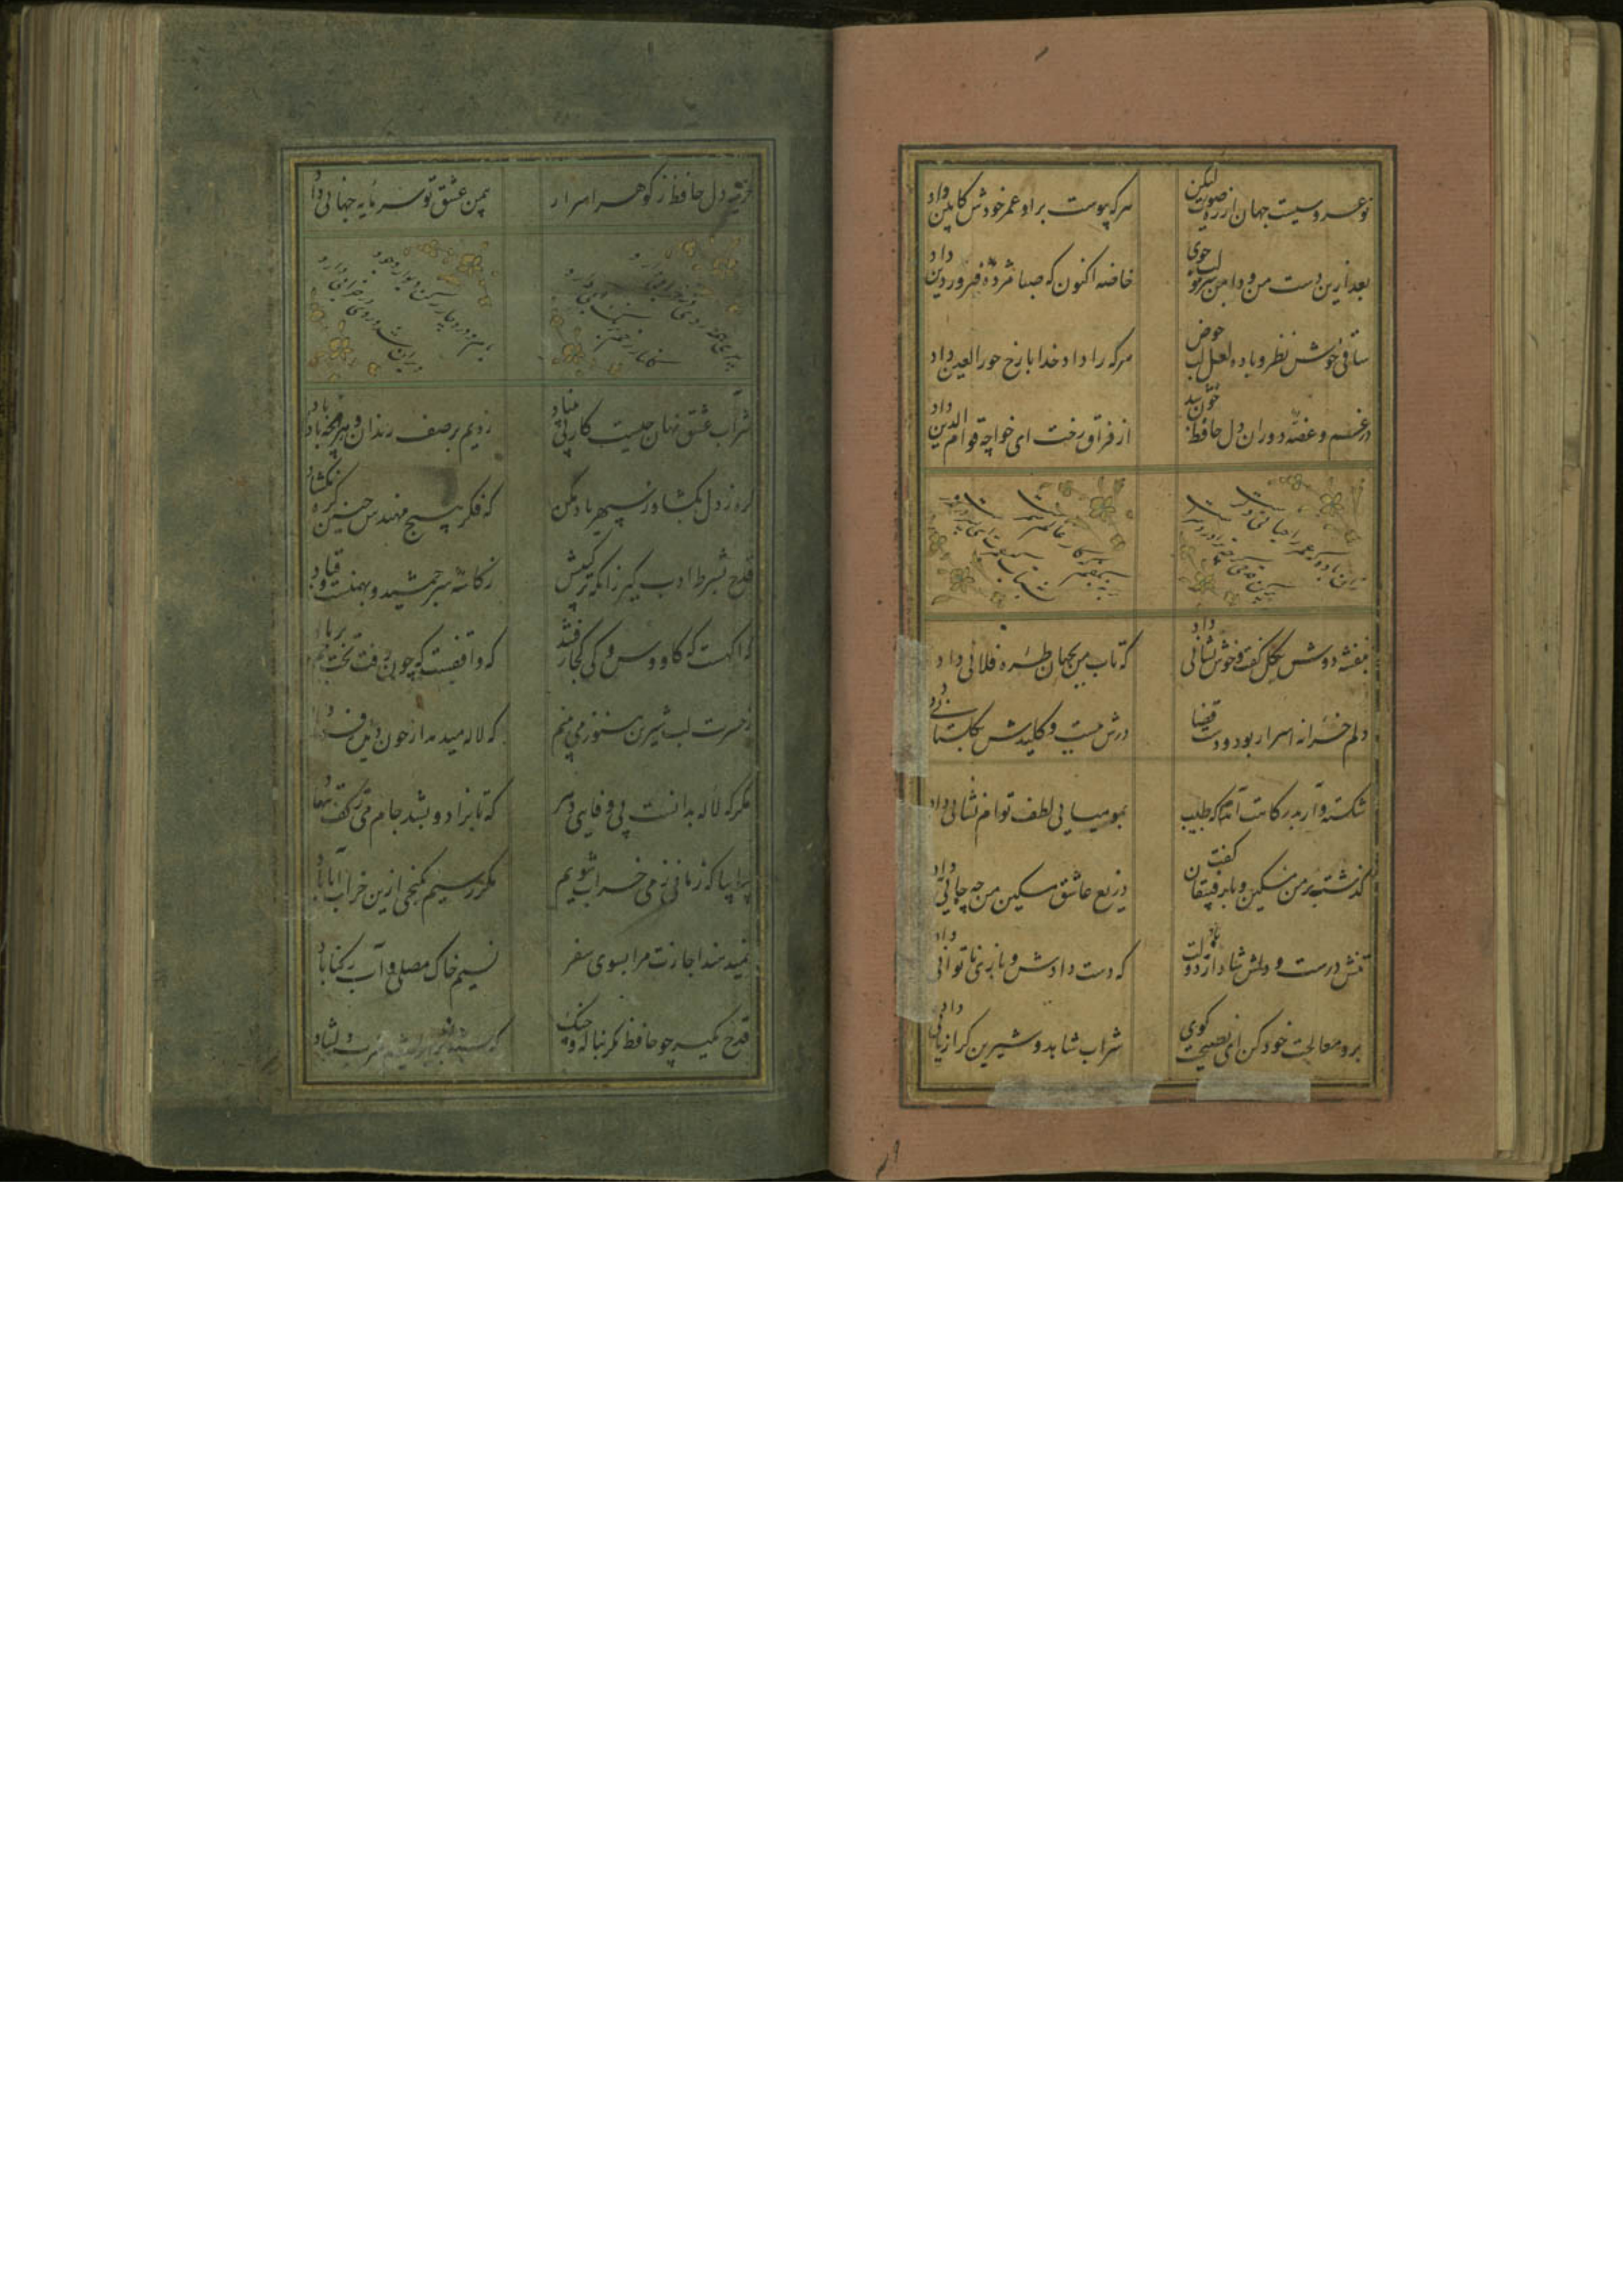 نوعروسیست جهان از ره صورت لیکن
هرکه پیوست براو عمر خودش کابین داد
بعد ازین دست من و دامن سرو لب جوی
خاصه اکنون که صبا مژده فروردین داد
ساقی خوش نظر و باده لعل لب حوض
هرکه را داد خدا با رخ حورالعین داد
در غم و غصه دوران دل حافظ خون شد
از فراق رخت ای خواجه قوام الدین داد
بنفشه دوش بگل گفت و خوش نشانی داد
که تاب من بجهان طره فلانی داد
دلم خزانه اسرار بود و دست قضا
درش ببست و کلیدش بدلستانی داد
شکسته وار بدرگاهت آمدم که طبیب
بمومیایی لطف توام نشانی داد
گذشت بر من مسکین و با رقیبان گفت
دریغ عاشق مسکین من چه جانی داد
تنش درست و دلش شاد باد از دولت
که دست دادش و یاری ناتوانی داد
برو معالجت خود کن ای نصیحت گوی
شراب و شاهد و شیرین کرا زیانی داد
خزینه دل حافظ ز گوهر اسرار
بیمن عشق تو سرمایه جهانی داد
شراب عشق نهان چیست کار بی بنیاد
زدیم بر صف رندان و هرچه بادا باد
گره ز دل بگشا وز سپهر یاد مکن
که فکر هیچ مهندس چنین گره نگشاد
قدح بشرط ادب گیر زانکه ترکیبش
ز کاسه سر جمشید و بهمنست و قباد
که آگهست که کاووس و کی کجا رفتند
که واقفست که چون رفت تخت جم بر باد
ز حسرت لب شیرین هنوز می بینم
که لاله میدمد از خون دیده فرهاد
مگر که لاله بدانست بی وفایی دهر
که تا بزاد و بشد جام می ز کف ننهاد
بیا بیا که زمانی ز می خراب شویم
مگر رسیم بگنجی ازین خراب آباد
نمیدهند اجازت مرا بسوی سفر
نسیم خاک مصلی و آب رکناباد
قدح مگیر چو حافظ مگر بناله چنگ